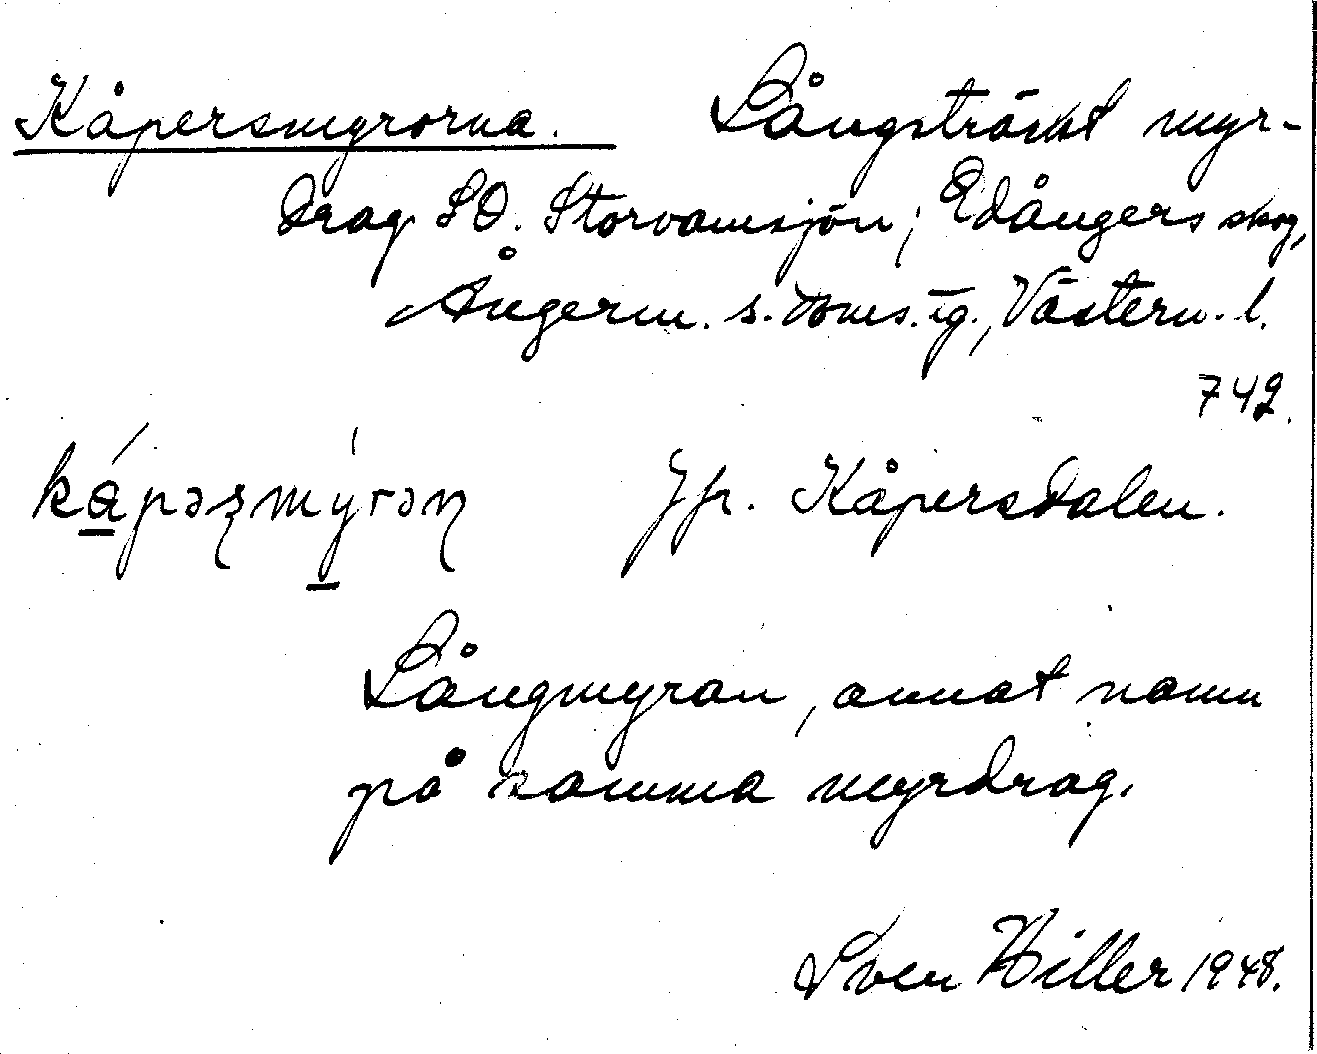 Kåpersmyrorna. Långsträckt myr-
drag SO. Storvamsjön, Edångers skog,
Ångerm. s. doms. tg., Västern. l.
742.
Jfr. Kåpersdalen.
Långmyran, annat namn
på samma myrdrag.
Sven Hiller 1948.